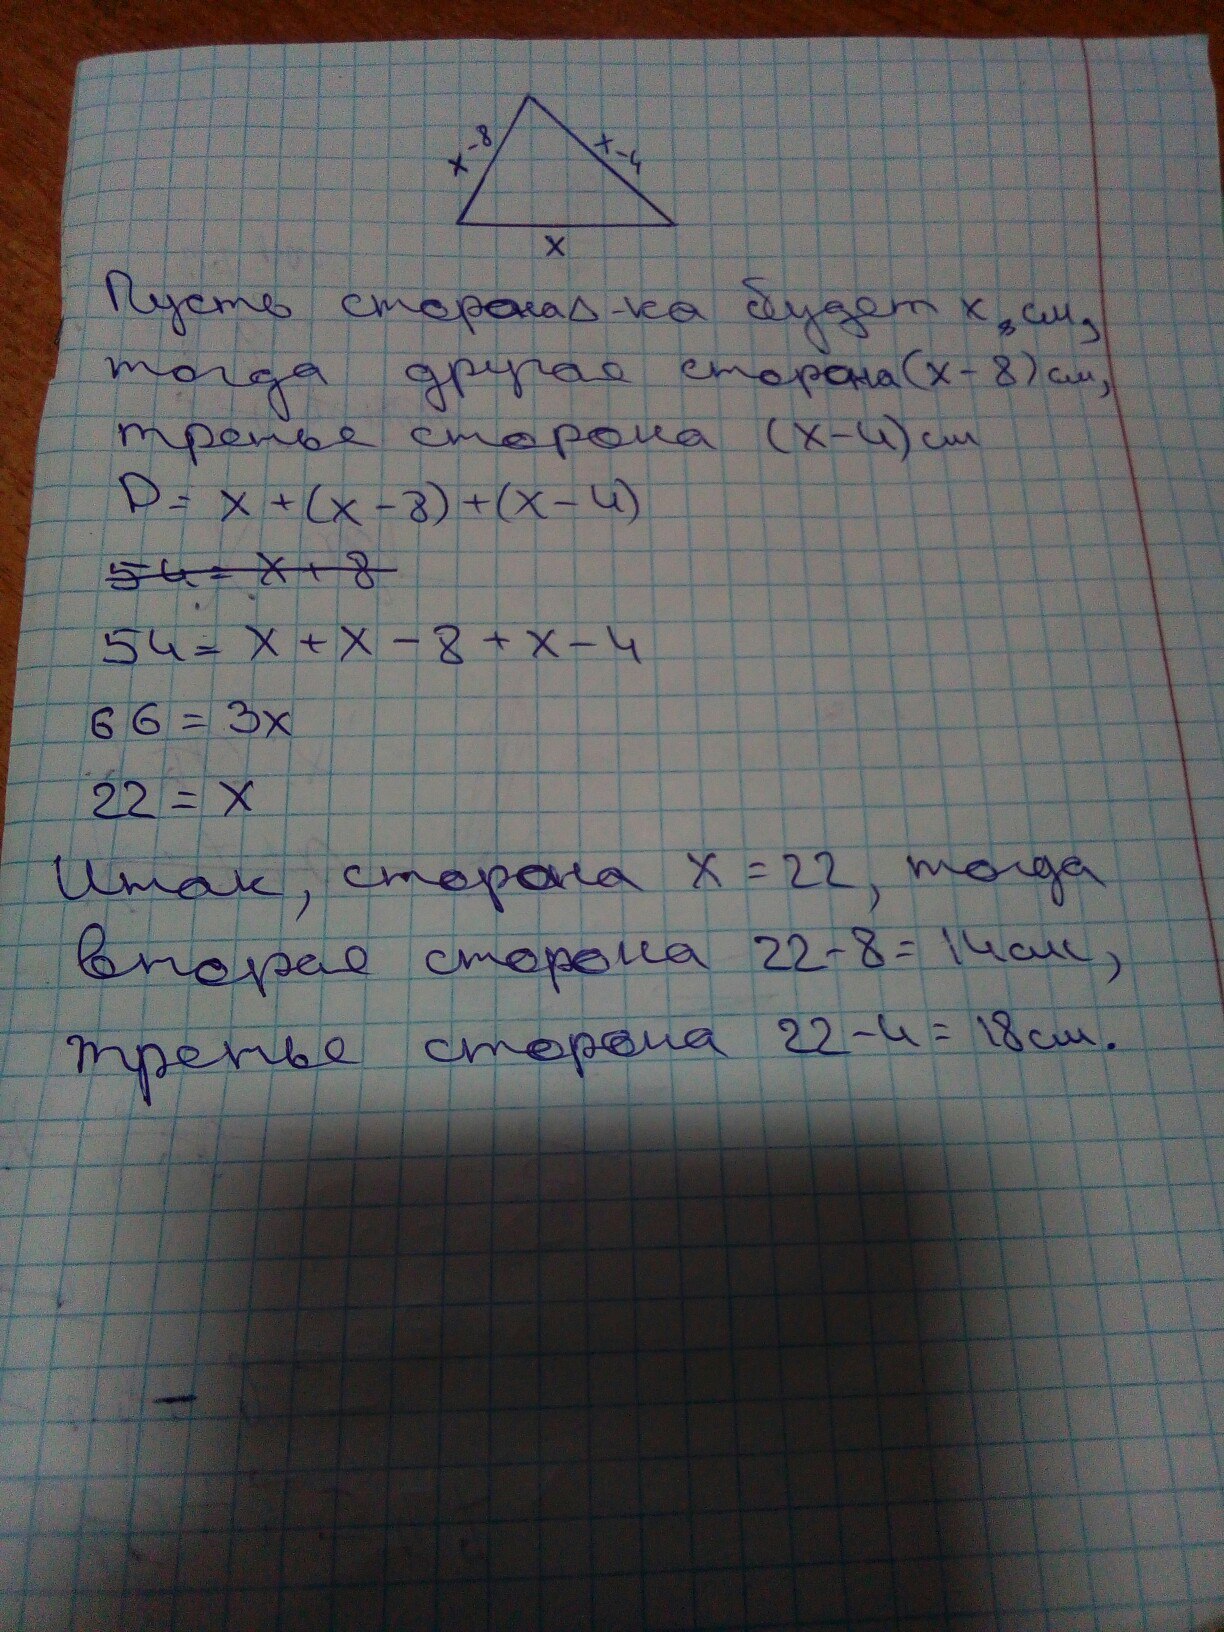 x-8
x-4
x
Пусть сторона Δ-ка будет x см,
тогда другая сторона (x-8) см,
третья сторона (x-4) см
P = x + (x-8) + (x-4)
54 = x + 8
54 = x + x - 8 + x - 4
66 = 3x
22 = x
Итак, сторона x = 22, тогда
вторая сторона 22-8=14см,
третья сторона 22-4=18см.